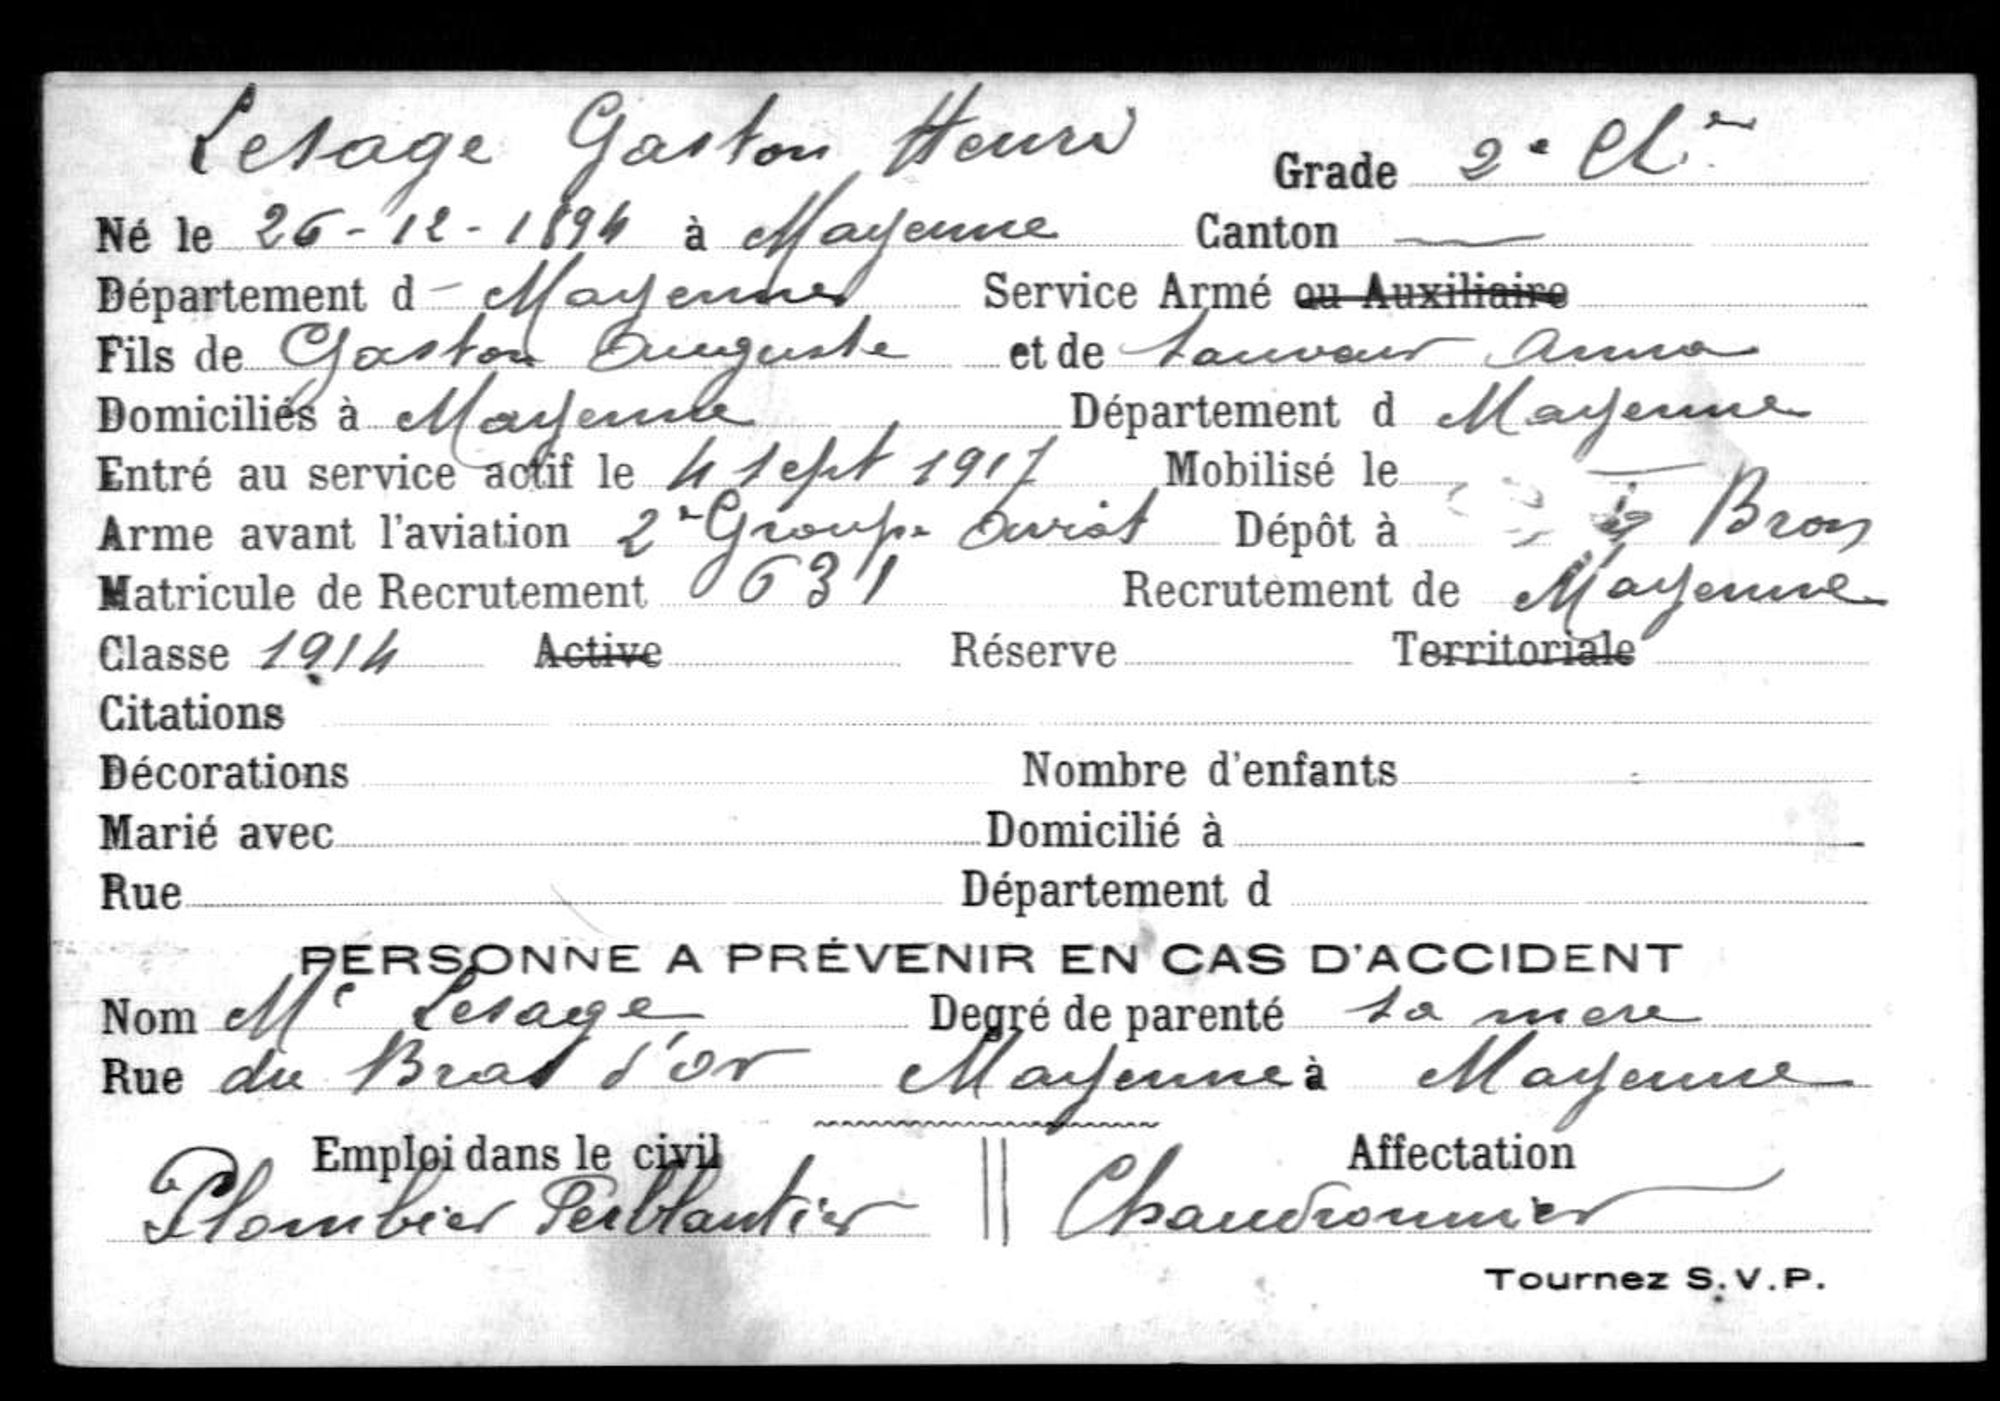 Lesage Gaston Henri Grade 2e Cl.
Né le 26-12-1894 à Mayenne Canton —
Département d Mayenne Service Armé ou Auxiliaire
Fils de Gaston Auguste et de Sauveur Anna
Domiciliés à Mayenne Département d Mayenne
Entré au service actif le 4 sept 1917 Mobilisé le —
Arme avant l'aviation 2e Groupe Aviat Dépôt à Bron
Matricule de Recrutement 631 Recrutement de Mayenne
Classe 1914 Active Réserve Territoriale
Citations
Décorations Nombre d'enfants
Marié avec Domicilié à
Rue Département d
PERSONNE A PRÉVENIR EN CAS D'ACCIDENT
Nom Me Lesage Degré de parenté sa mere
Rue du Bras d'or Mayenne à Mayenne
Emploi dans le civil Affectation
Plombier Ferblantier Chaudronnier
Tournez S.V.P.